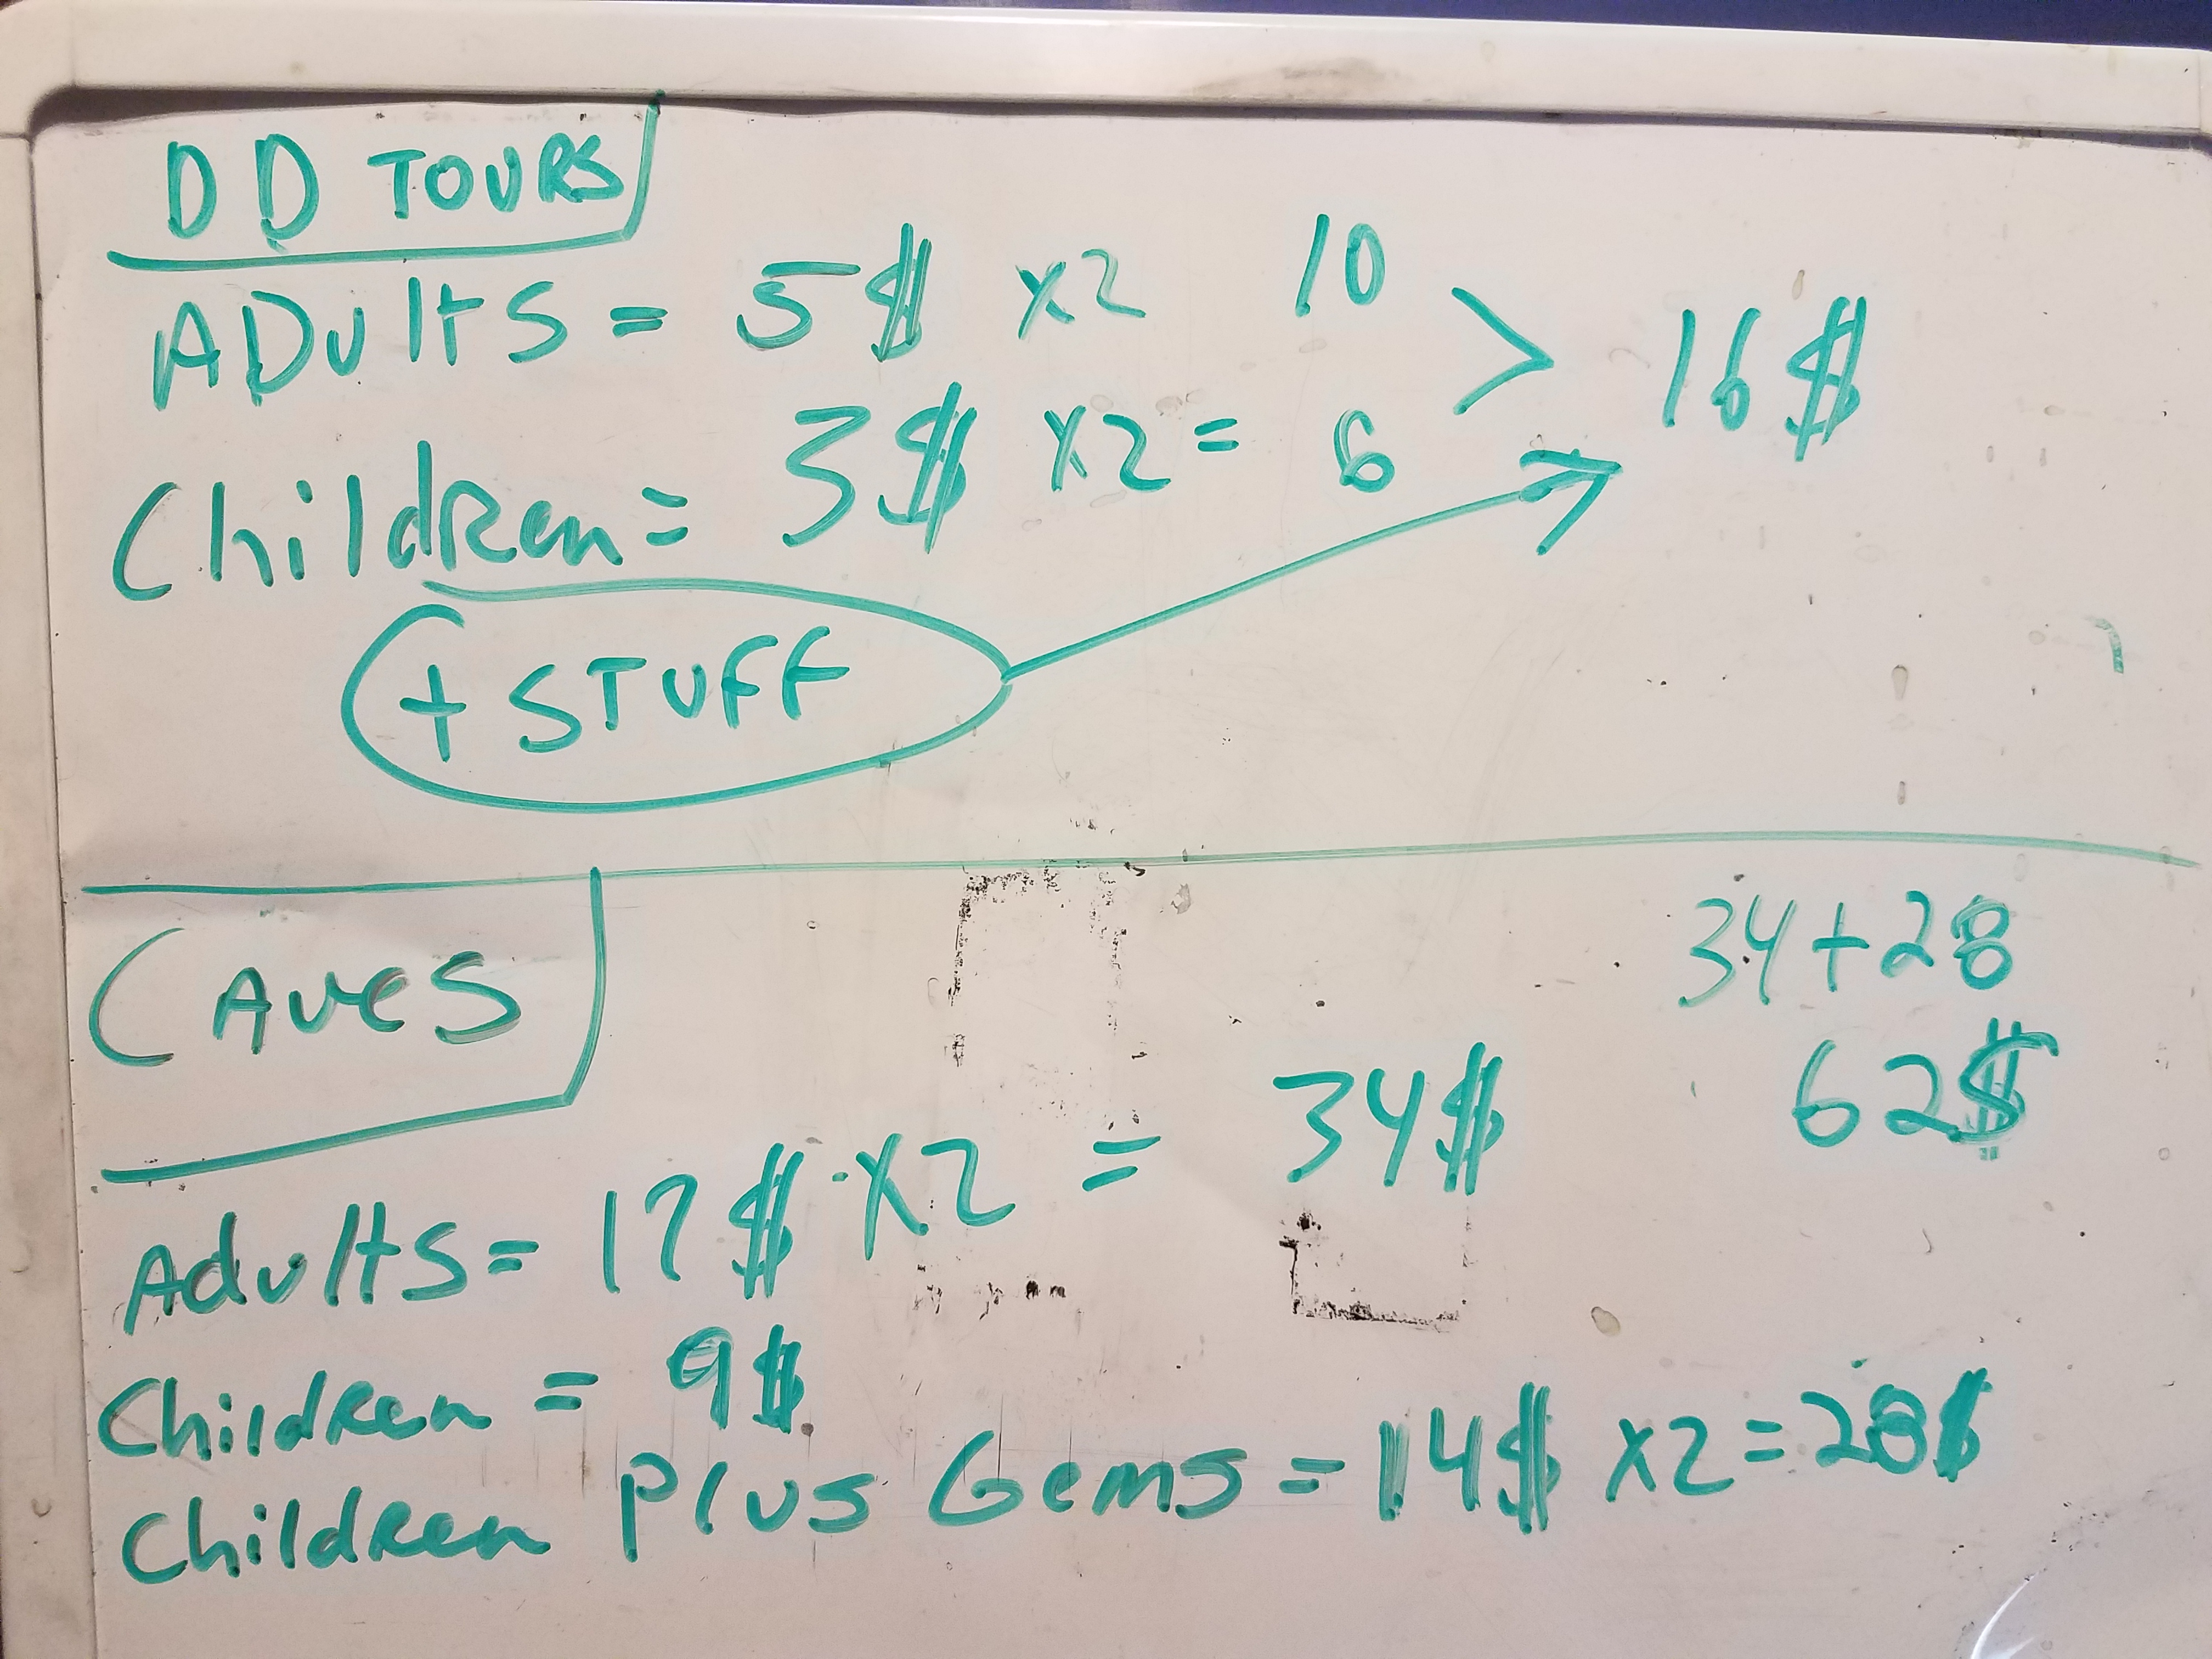 DD TOURS
ADults = 5$ x2 10
> 16$
Children = 3$ x2 = 6
+ STUFF
CAves
34+28
62$
Adults = 17$ x2 = 34$
Children = 9$
Children plus Gems = 14$ x2 = 28$